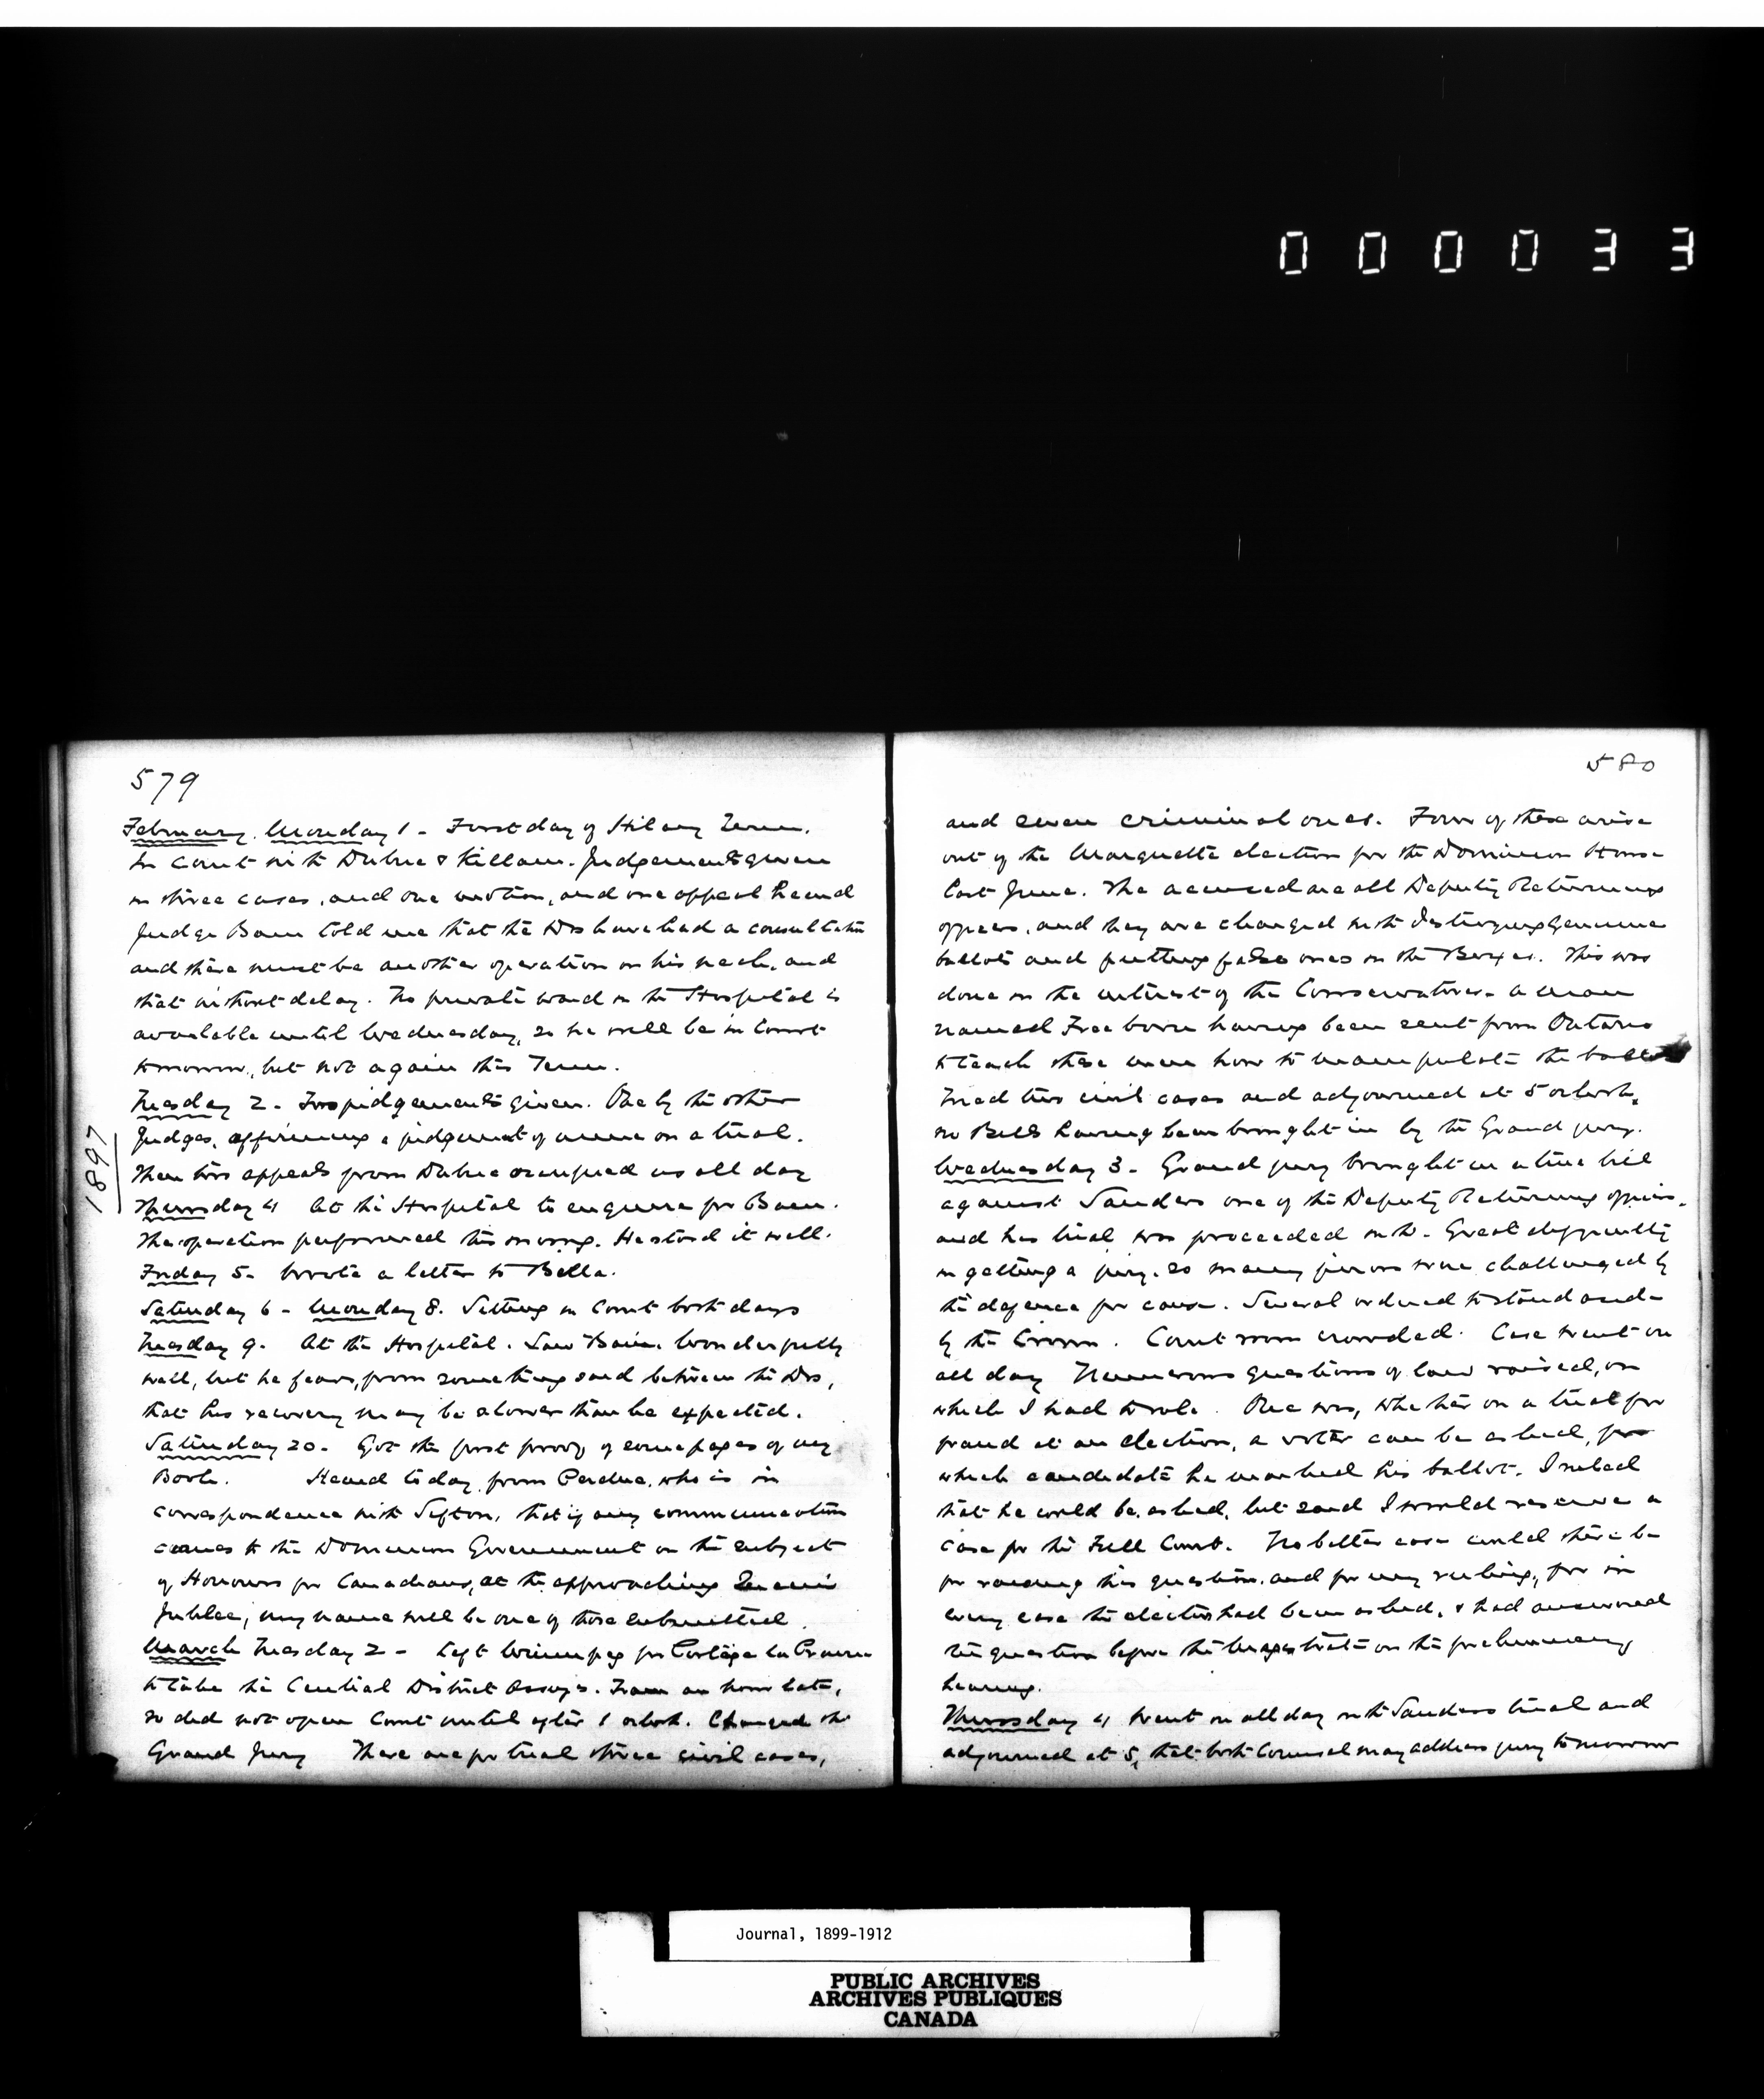 000033
579
February. Monday 1 - First day of Hilary Term.
In Court with Dubuc & Killam. Judgements given
in three cases, and one motion, and one appeal heard
Judge Bain told me that the Drs have had a consultation
and there must be another operation on his neck, and
that without delay. No private ward in the Hospital is
available until Wednesday, so he will be in Court
tomorrow, but not again this Term.
Tuesday 2 - Two judgements given. One by the other
Judges, affirming a judgment of mine on a trial.
Then two appeals from Dubuc occupied us all day
1897
Thursday 4 At the Hospital to enquire for Bain.
The operation performed this morning. He stood it well.
Friday 5 - Wrote a letter to Bella.
Saturday 6 - Monday 8. Sitting in Court both days
Tuesday 9. At the Hospital. Saw Bain. Wonderfully
well, but he fears, from something said between the Drs,
that his recovery may be slower than he expected.
Saturday 20 - Got the first proof of some pages of my
Book. Heard today from Perdue, who is in
correspondence with Sifton, that if any communication
comes to the Dominion Government on the subject
of Honours for Canadians, at the approaching Queen's
Jubilee, my name will be one of those submitted.
March Tuesday 2 - Left Winnipeg for Portage la Prairie
to take the Central District Assizes. Train an hour late,
so did not open Court until after 1 oclock. Charged the
Grand Jury There are for trial three civil cases,
580
and seven criminal ones. Four of these arise
out of the Marquette election for the Dominion House
last June. The accused are all Deputy Returning
officers, and they are charged with destroying genuine
ballots and putting false ones in the Boxes. This was
done in the interest of the Conservatives - a man
named Freeborn having been sent from Ontario
to teach these men how to manipulate the ballots
Tried two civil cases and adjourned at 5 oclock,
no Bills having been brought in by the Grand jury.
Wednesday 3 - Grand jury brought in a true bill
against Sanders one of the Deputy Returning officers,
and his trial was proceeded with. Great difficulty
in getting a jury, so many jurors were challenged by
the defence for cause. Several ordered to stand aside
by the Crown. Court room crowded. Case went on
all day Numerous questions of law raised, on
which I had to rule. One was, whether on a trial for
fraud at an election, a voter can be asked, for
which candidate he marked his ballot. I ruled
that he could be asked, but said I would reserve a
case for the Full Court. No better case could there be
for raising this question, and for my ruling, for in
every case the electors had been asked, & had answered
the question before the Magistrate on the preliminary
hearing.
Thursday 4 Went on all day with Sanders trial and
adjourned at 5, that both Counsel may address jury tomorrow
Journal, 1899-1912
PUBLIC ARCHIVES
ARCHIVES PUBLIQUES
CANADA